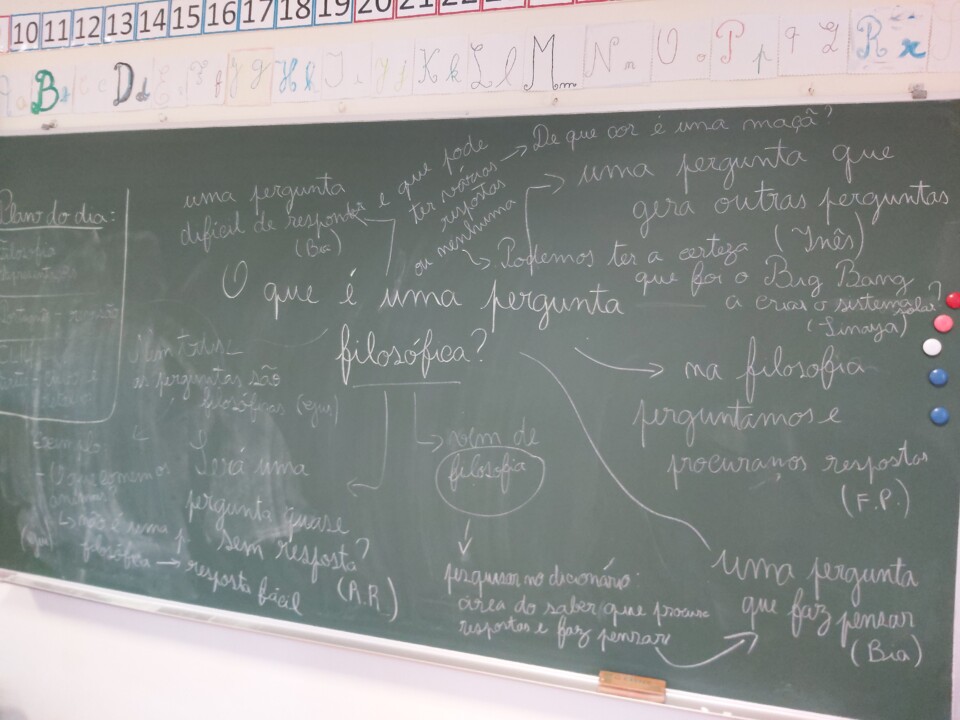 10 11 12 13 14 15 16 17 18 19 20 21 22
B D d E H h I K k L l M m N n O o P p q R r
Plano do dia:
Filosofia
uma pergunta
difícil de responder
(Bia)
e que pode
ter várias
respostas
ou nenhuma
De que cor é uma maçã?
Podemos ter a certeza
que foi o Big Bang
a criar o sistema solar?
(Sinaya)
uma pergunta que
gera outras perguntas
(Inês)
O que é uma pergunta
filosófica?
na filosofia
perguntamos e
procuramos respostas
(F.P.)
Nem todas
as perguntas são
filosóficas
Exemplo
não é uma p.
filosófica → resposta fácil
Será uma
pergunta quase
sem resposta?
(A.R.)
vem de
filosofia
pesquisar no dicionário:
área do saber que procura
respostas e faz pensar
uma pergunta
que faz pensar
(Bia)